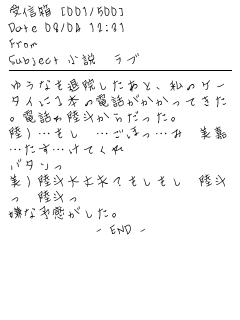 受信箱 [001/500]
Date 08/04 12:31
From
Subject 小説 ラブ
ゆうなを退院したあと、私のケー
タイに1本の電話がかかってきた
。電話わ陸斗からだった。
陸)…もし …ごほっ…お 美嘉
…たす…けてくれ
バタンっ
美)陸斗大丈夫?もしもし 陸斗
っ 陸斗っ
嫌な予感がした。
- END -